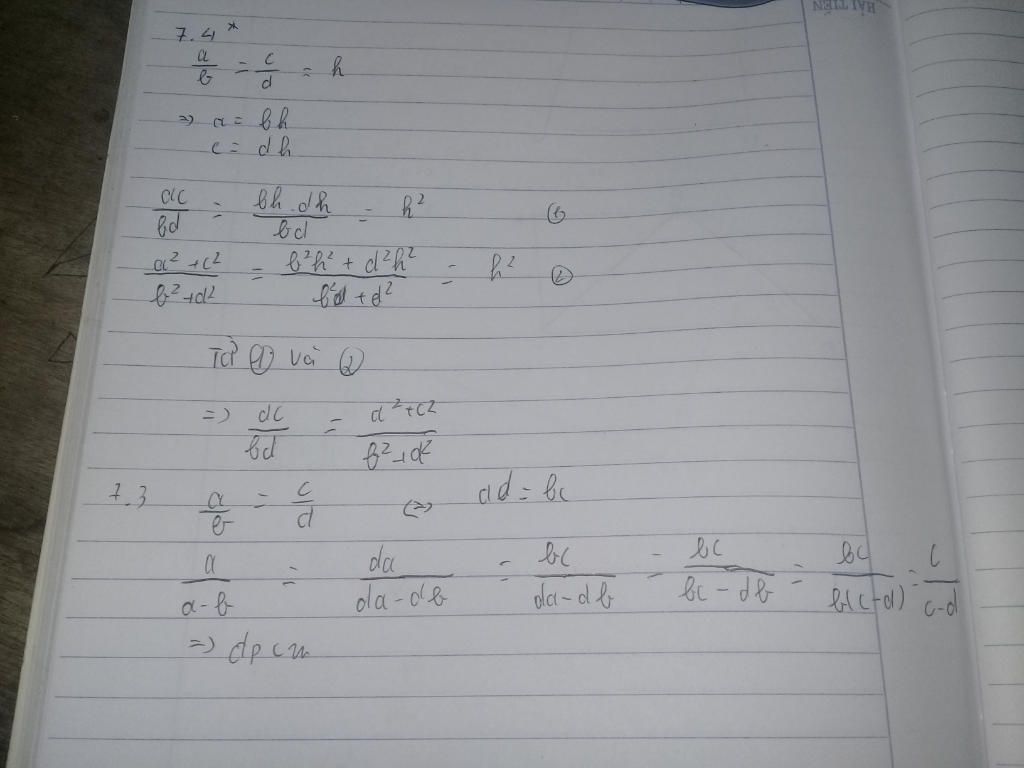 HẢI TIẾN
7.4 *
a/b = c/d = h
=> a = bh
c = dh
ac/bd = bh.dh/bd = h² ①
a²+c²/b²+d² = b²h² + d²h²/b²d + d² = h² ②
Từ ① và ②
=> ac/bd = a²+c²/b²+d²
7.3 a/b = c/d <=> ad = bc
a/a-b = da/da-db = bc/da-db = bc/bc-db = bc/b(c-d) = c/c-d
=> dpcm